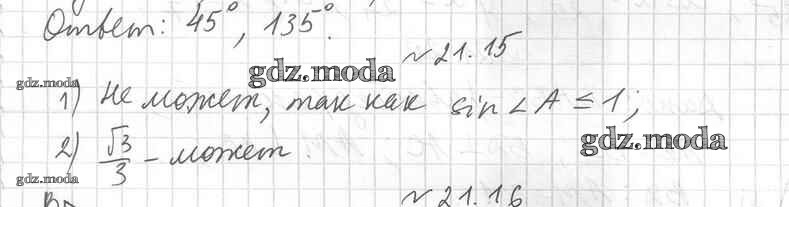 Ответ: 45°, 135°.
№21.15
gdz.moda
gdz.moda
1) не может, так как sin∠A ≤ 1;
gdz.moda
2) √3/3 - может
gdz.moda
№21.16